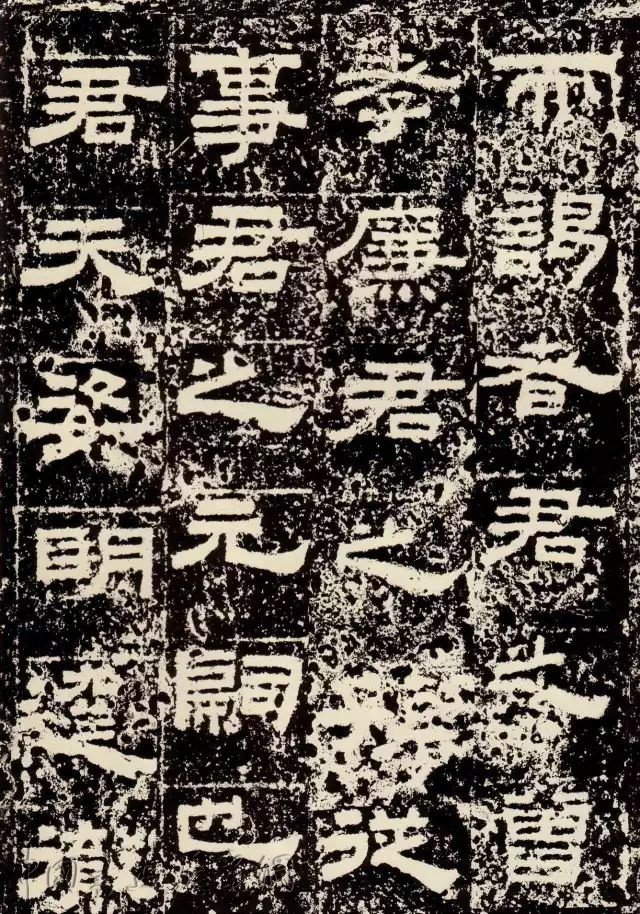 謁者君之曾
孝廉君之孫從
事君之元嗣也
君天姿明